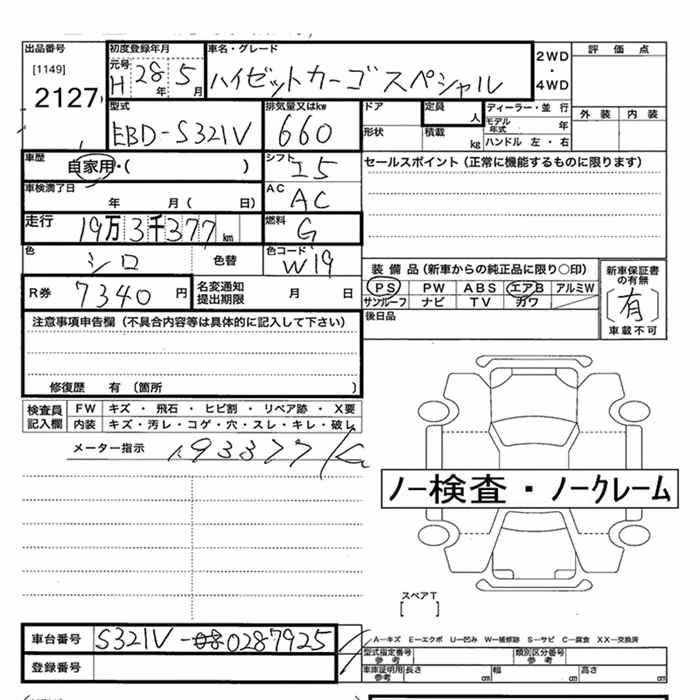 出品番号
[1149]
2127
初度登録年月
元号
H 28年 5月
車名・グレード
ハイゼットカーゴ スペシャル
2WD
・
4WD
評価点
外装 内装
型式
EBD-S321V
排気量又はkw
660
ドア
形状
定員
人
積載
kg
ディーラー・並行
モデル年式 年
ハンドル 左・右
車歴
自家用・( )
シフト
I5
セールスポイント(正常に機能するものに限ります)
車検満了日
年 月( 日)
AC
AC
走行
19万3千377km
燃料
G
色
シロ
色替
色コード
W19
装備品(新車からの純正品に限り○印)
PS PW ABS エアB アルミW
サンルーフ ナビ TV カワ
新車保証書
の有無
[有]
車載不可
R券
7340円
名変通知
提出期限
月 日
後日品
注意事項申告欄(不具合内容等は具体的に記入して下さい)
修復歴 有(箇所 )
検査員
記入欄
FW キズ・飛石・ヒビ割・リペア跡・X要
内装 キズ・汚レ・コゲ・穴・スレ・キレ・破レ
メーター指示
193377K
ノー検査・ノークレーム
スペアT
[ ]
車台番号
S321V-0287925
登録番号
A-キズ E-エクボ U-凹み W-補修跡 S-サビ C-腐食 XX-交換済
型式指定番号
参考
類別区分番号
参考
車庫証明用
参考
長さ cm 幅 cm 高さ cm